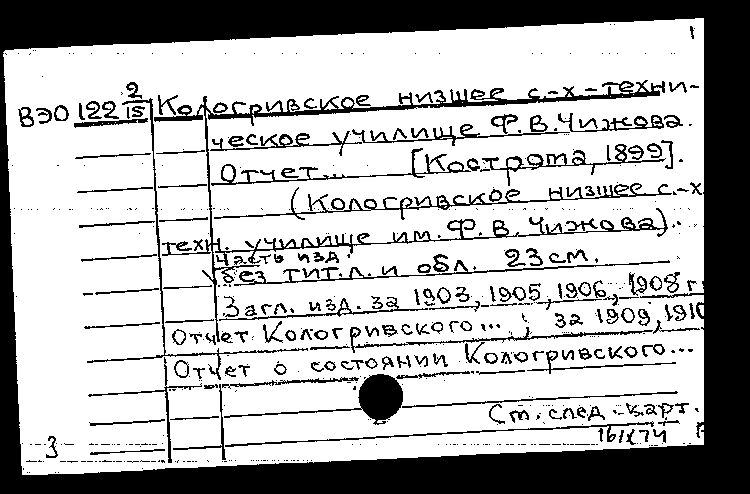 1
ВЭО 122 2/15 Кологривское низшее с.-х-техни-
ческое училище Ф.В.Чижова.
Отчет... [Кострома, 1899].
(Кологривское низшее с.-х
техн. училище им. Ф.В. Чижова).
Часть изд.
без тит.л. и обл. 23 см.
Загл. изд. за 1903, 1905, 1906, 1908 г
Отчет Кологривского... ; за 1909, 1910
Отчет о состоянии Кологривского...
См. след. карт.
3 16/X 74